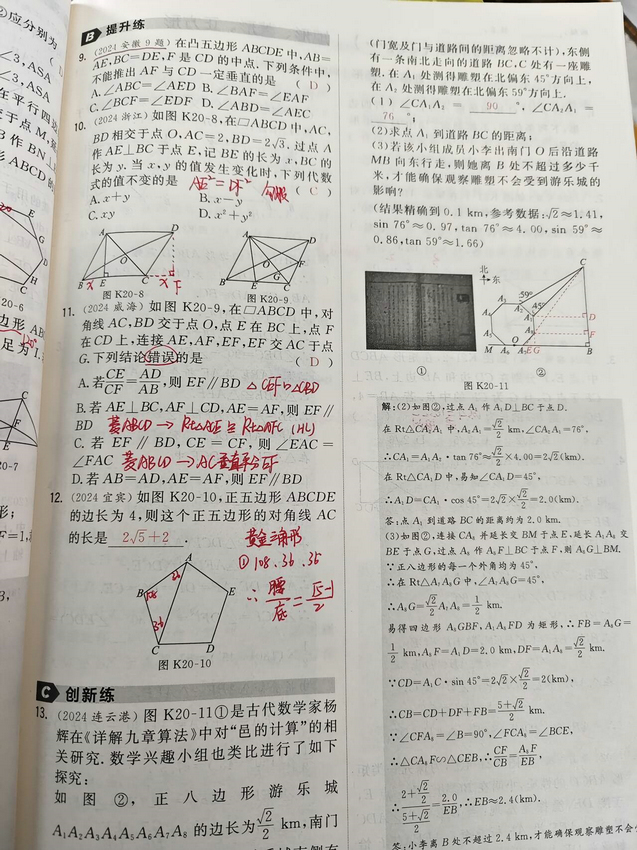 应分别为
∠3,ASA
∠3,ASA
在平行四边
交于点 M,
B 作 BN
形 ABCD 的
20-6
足为 I.
20-7
形;
F=1,
B 提升练
9. (2024 安徽 9 题)在凸五边形 ABCDE 中,AB=
AE,BC=DE,F 是 CD 的中点. 下列条件中,
不能推出 AF 与 CD 一定垂直的是 ( D )
A. ∠ABC=∠AED B. ∠BAF=∠EAF
C. ∠BCF=∠EDF D. ∠ABD=∠AEC
10. (2024 浙江)如图 K20-8,在▱ABCD 中,AC,
BD 相交于点 O,AC=2,BD=2√3. 过点 A
作 AE⊥BC 于点 E,记 BE 的长为 x,BC 的
长为 y. 当 x,y 的值发生变化时,下列代数
式的值不变的是 AE²=DF² 勾股 ( C )
A. x+y B. x-y
C. xy D. x²+y²
A D O B x E C x F
A D O F B E G C
图 K20-8 图 K20-9
11. (2024 威海)如图 K20-9,在▱ABCD 中,对
角线 AC,BD 交于点 O,点 E 在 BC 上,点 F
在 CD 上,连接 AE,AF,EF,EF 交 AC 于点
G. 下列结论错误的是 ( D )
A. 若CE/CF=AD/AB,则 EF∥BD △CEF∽△CBD
B. 若 AE⊥BC,AF⊥CD,AE=AF,则 EF∥
BD 菱ABCD → Rt△AGE ≌ Rt△AFG (HL)
C. 若 EF∥BD,CE=CF,则∠EAC=
∠FAC 菱ABCD → AC垂直平分EF
D. 若 AB=AD,AE=AF,则 EF∥BD
12. (2024 宜宾)如图 K20-10,正五边形 ABCDE
的边长为 4,则这个正五边形的对角线 AC
的长是 2√5+2 . 黄金三角形
① 108. 36. 36
∴ 腰/底=(√5-1)/2
A B E C D 108 36 36
图 K20-10
C 创新练
13. (2024 连云港)图 K20-11①是古代数学家杨
辉在《详解九章算法》中对“邑的计算”的相
关研究. 数学兴趣小组也类比进行了如下
探究:
如图②,正八边形游乐城
A₁A₂A₃A₄A₅A₆A₇A₈ 的边长为√2/2 km,南门
(门宽及门与道路间的距离忽略不计),东侧
有一条南北走向的道路 BC,C 处有一座雕
塑. 在 A₁ 处测得雕塑在北偏东 45°方向上,
在 A₂ 处测得雕塑在北偏东 59°方向上.
(1)∠CA₁A₂ = 90 °,∠CA₂A₁ =
76 °;
(2)求点 A₁ 到道路 BC 的距离;
(3)若该小组成员小李出南门 O 后沿道路
MB 向东行走,则她离 B 处不超过多少千
米,才能确保观察雕塑不会受到游乐城的
影响?
(结果精确到 0.1 km,参考数据:√2≈1.41,
sin 76°≈0.97,tan 76°≈4.00,sin 59°≈
0.86,tan 59°≈1.66)
北 东 59° 45° C D F B M E G
① ②
图 K20-11
解:(2)如图②,过点 A₁ 作 A₁D⊥BC 于点 D.
在 Rt△CA₁A₂ 中,A₁A₂=√2/2 km,∠CA₂A₁=76°,
∴CA₁=A₁A₂·tan 76°≈√2/2×4.00=2√2(km).
在 Rt△CA₁D 中,易知∠CA₁D=45°,
∴A₁D=CA₁·cos 45°=2√2×√2/2=2.0(km).
答:点 A₁ 到道路 BC 的距离约为 2.0 km.
(3)如图②,连接 CA₈ 并延长交 BM 于点 E,延长 A₁A₈ 交
BE 于点 G,过点 A₈ 作 A₈F⊥BC 于点 F,则 A₈G⊥BM.
∵正八边形的每一个外角均为 45°,
∴在 Rt△A₇A₈G 中,∠A₇A₈G=45°,
∴A₈G=√2/2 A₇A₈=1/2 km.
易得四边形 A₈GBF,A₁A₈FD 为矩形,∴FB=A₈G=
1/2 km,A₈F=A₁D=2.0 km,DF=A₁A₈=√2/2 km.
∵CD=A₁C·sin 45°=2√2×√2/2=2(km),
∴CB=CD+DF+FB=(5+√2)/2 km.
∵∠CFA₈=∠B=90°,∠FCA₈=∠BCE,
∴△CA₈F∽△CEB,∴CF/CB=A₈F/EB,
∴(2+√2/2)/((5+√2)/2)=2.0/EB,∴EB≈2.4(km).
答:小李离 B 处不超过 2.4 km,才能确保观察雕塑不会